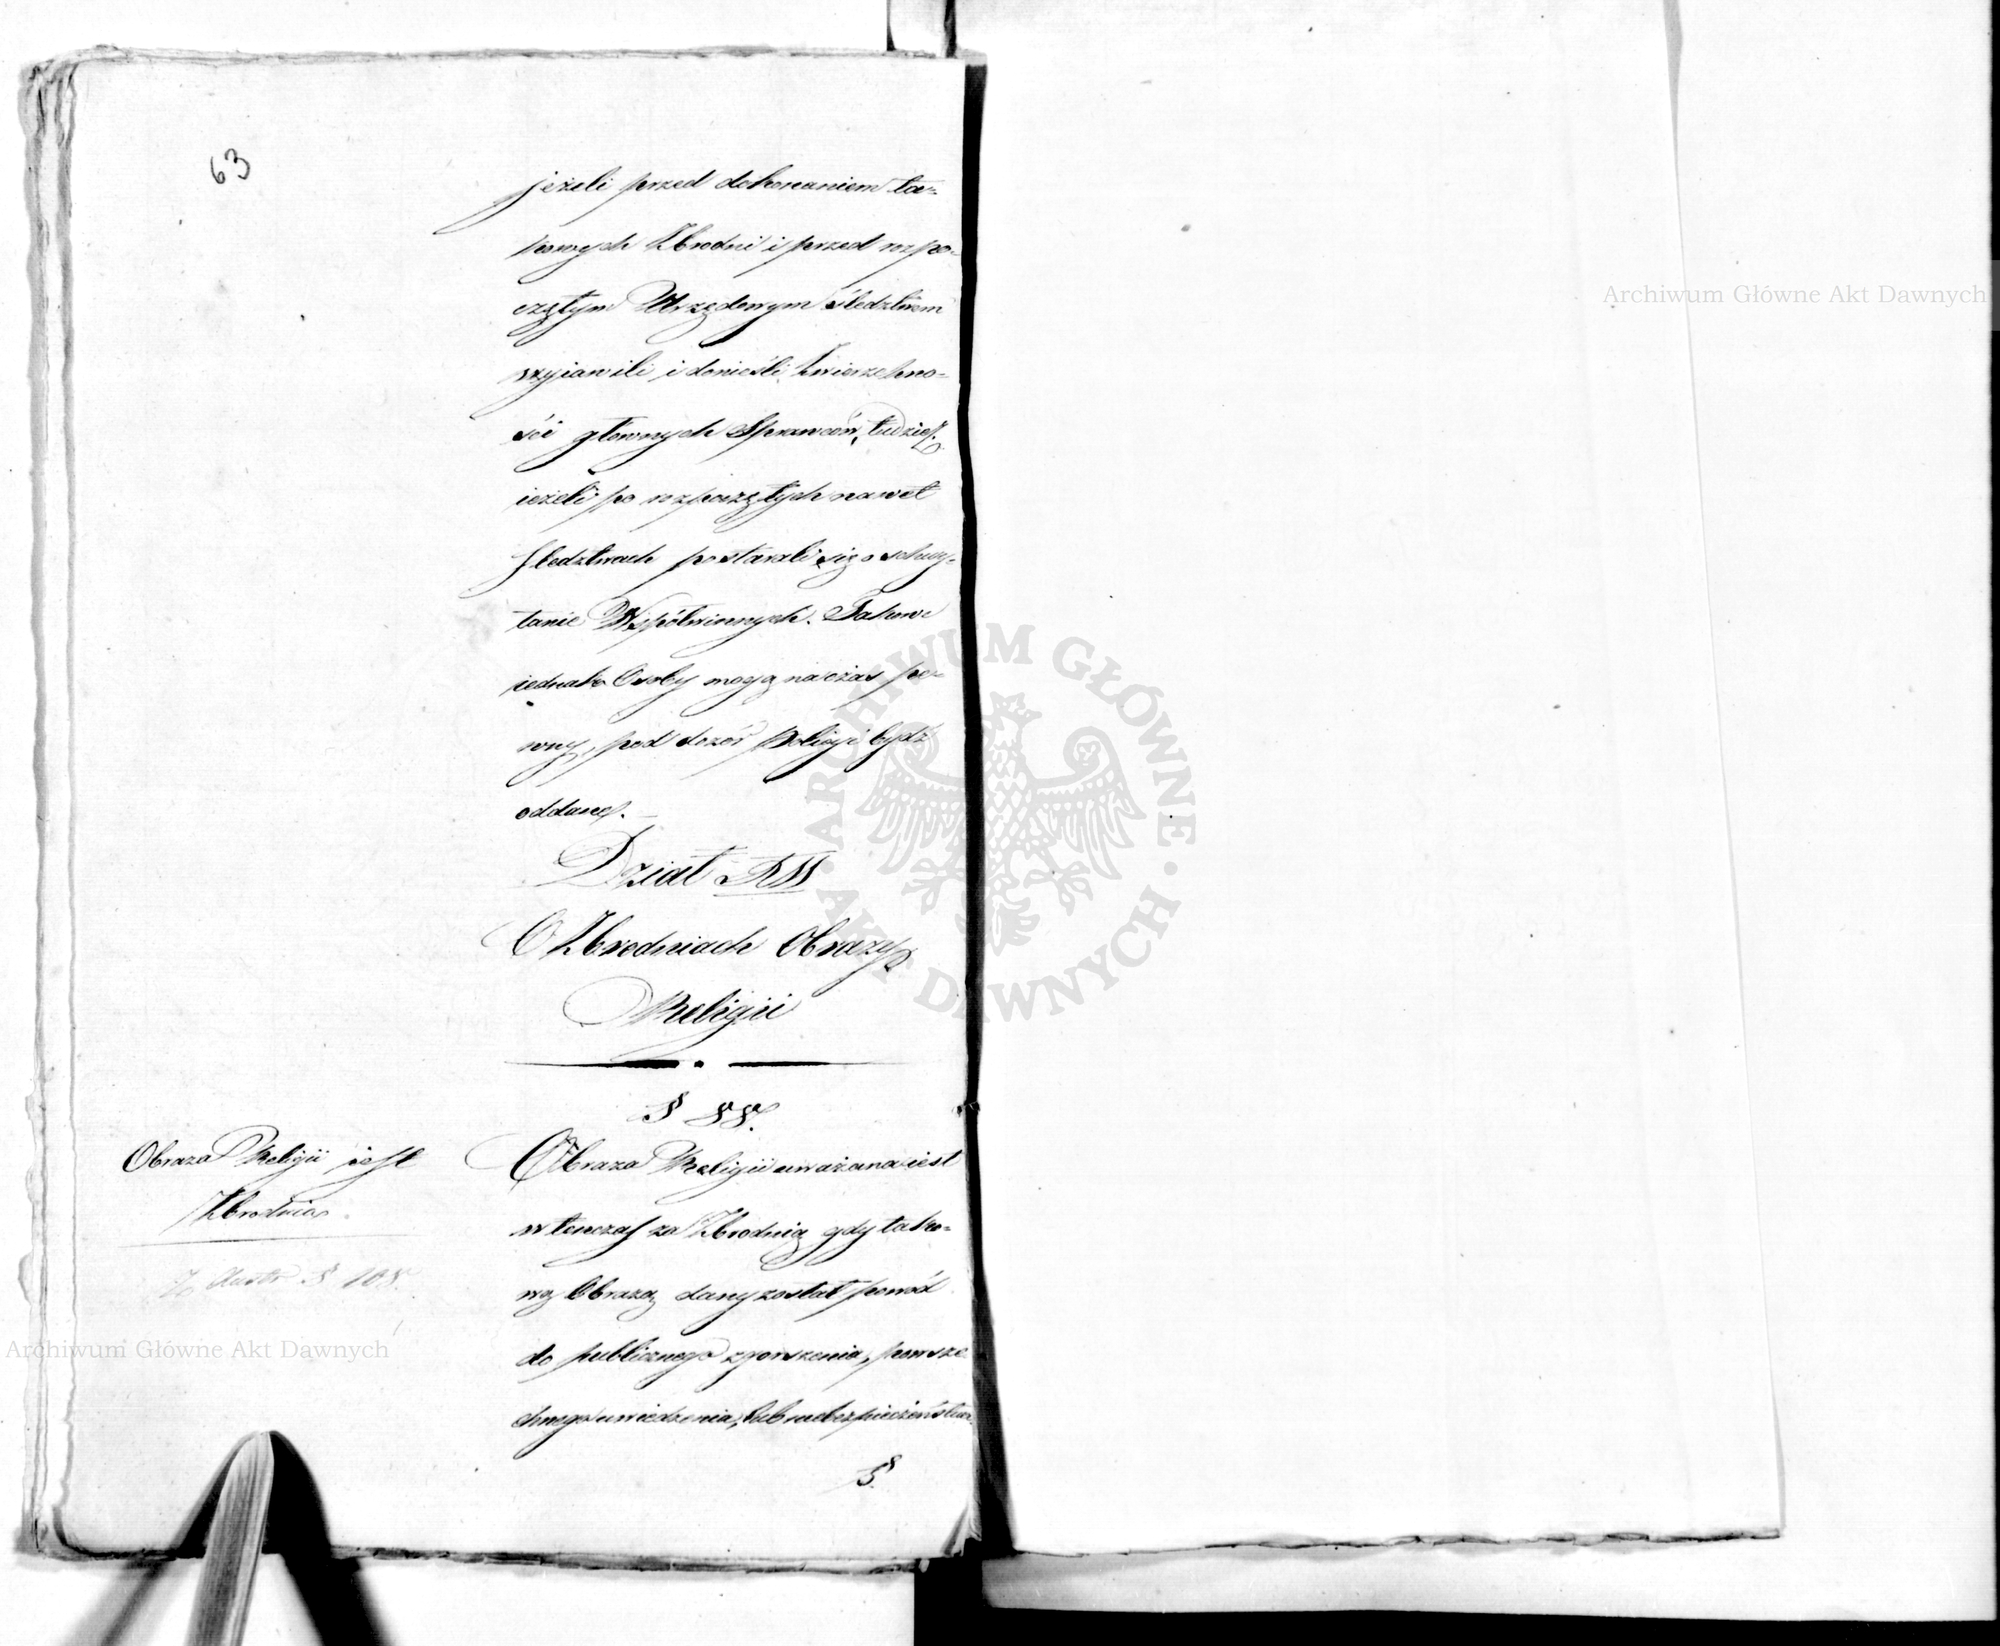 63
jeżeli przed dokonaniem ta-
kowych Zbrodni i przed rozpo-
czętym Urzędowym śledztwem
wyiawili i donieśli Zwierzchno-
ści głównych Sprawców, tudzież
ieżeli po rozpoczętych nawet
śledztwach postarali się o schwy-
tanie Współwinnych. Takowe
iednak Osoby mogą na czas pe-
wny, pod dozór Policyi bydź
oddane.
Dział
O Zbrodniach Obrazy
Religii
§ 88.
Obraza Religii iest
Zbrodnią.
Z Austr § 108.
Obraza Religii uważana iest
w tenczas za Zbrodnią gdy tako-
wą Obrazą dany został powód
do publicznego zgorszenia, powsze
chnego uwiedzenia, lub niebezpieczeństwa.
§.
Archiwum Główne Akt Dawnych
Archiwum Główne Akt Dawnych
ARCHIWUM GŁÓWNE · AKT DAWNYCH ·